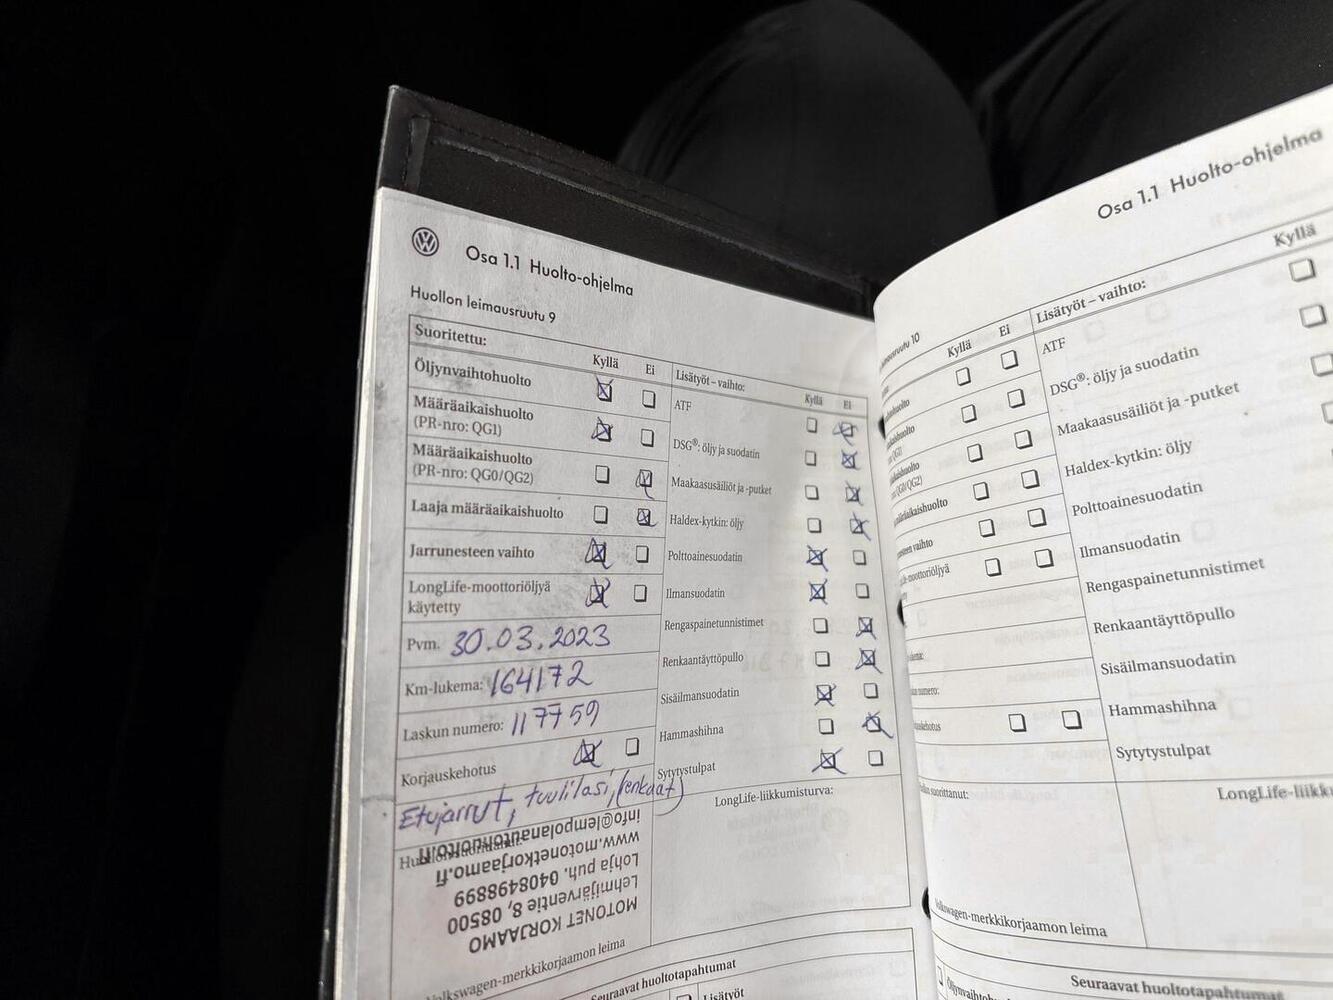 Osa 1.1 Huolto-ohjelma
Huollon leimausruutu 9
Suoritettu:
Kyllä Ei
Öljynvaihtohuolto
Määräaikaishuolto
(PR-nro: QG1)
Määräaikaishuolto
(PR-nro: QG0/QG2)
Laaja määräaikaishuolto
Jarrunesteen vaihto
LongLife-moottoriöljyä
käytetty
Pvm. 30.03.2023
Km-lukema: 164172
Laskun numero: 117759
Korjauskehotus
Etujarrut, tuulilasi, (renkaat)
MOTONET KORJAAMO
Lehmijärventie 8, 08500
Lohja puh. 0408498899
www.motonetkorjaamo.fi
Volkswagen-merkkikorjaamon leima
Lisätyöt – vaihto:
Kyllä Ei
ATF
DSG®: öljy ja suodatin
Maakaasusäiliöt ja -putket
Haldex-kytkin: öljy
Polttoainesuodatin
Ilmansuodatin
Rengaspainetunnistimet
Renkaantäyttöpullo
Sisäilmansuodatin
Hammashihna
Sytytystulpat
LongLife-liikkumisturva:
Seuraavat huoltotapahtumat
Lisätyöt
Osa 1.1 Huolto-ohjelma
10
Kyllä Ei
Lisätyöt – vaihto:
Kyllä
ATF
DSG®: öljy ja suodatin
Maakaasusäiliöt ja -putket
Haldex-kytkin: öljy
Polttoainesuodatin
Ilmansuodatin
Rengaspainetunnistimet
Renkaantäyttöpullo
Sisäilmansuodatin
Hammashihna
Sytytystulpat
Volkswagen-merkkikorjaamon leima
Seuraavat huoltotapahtumat